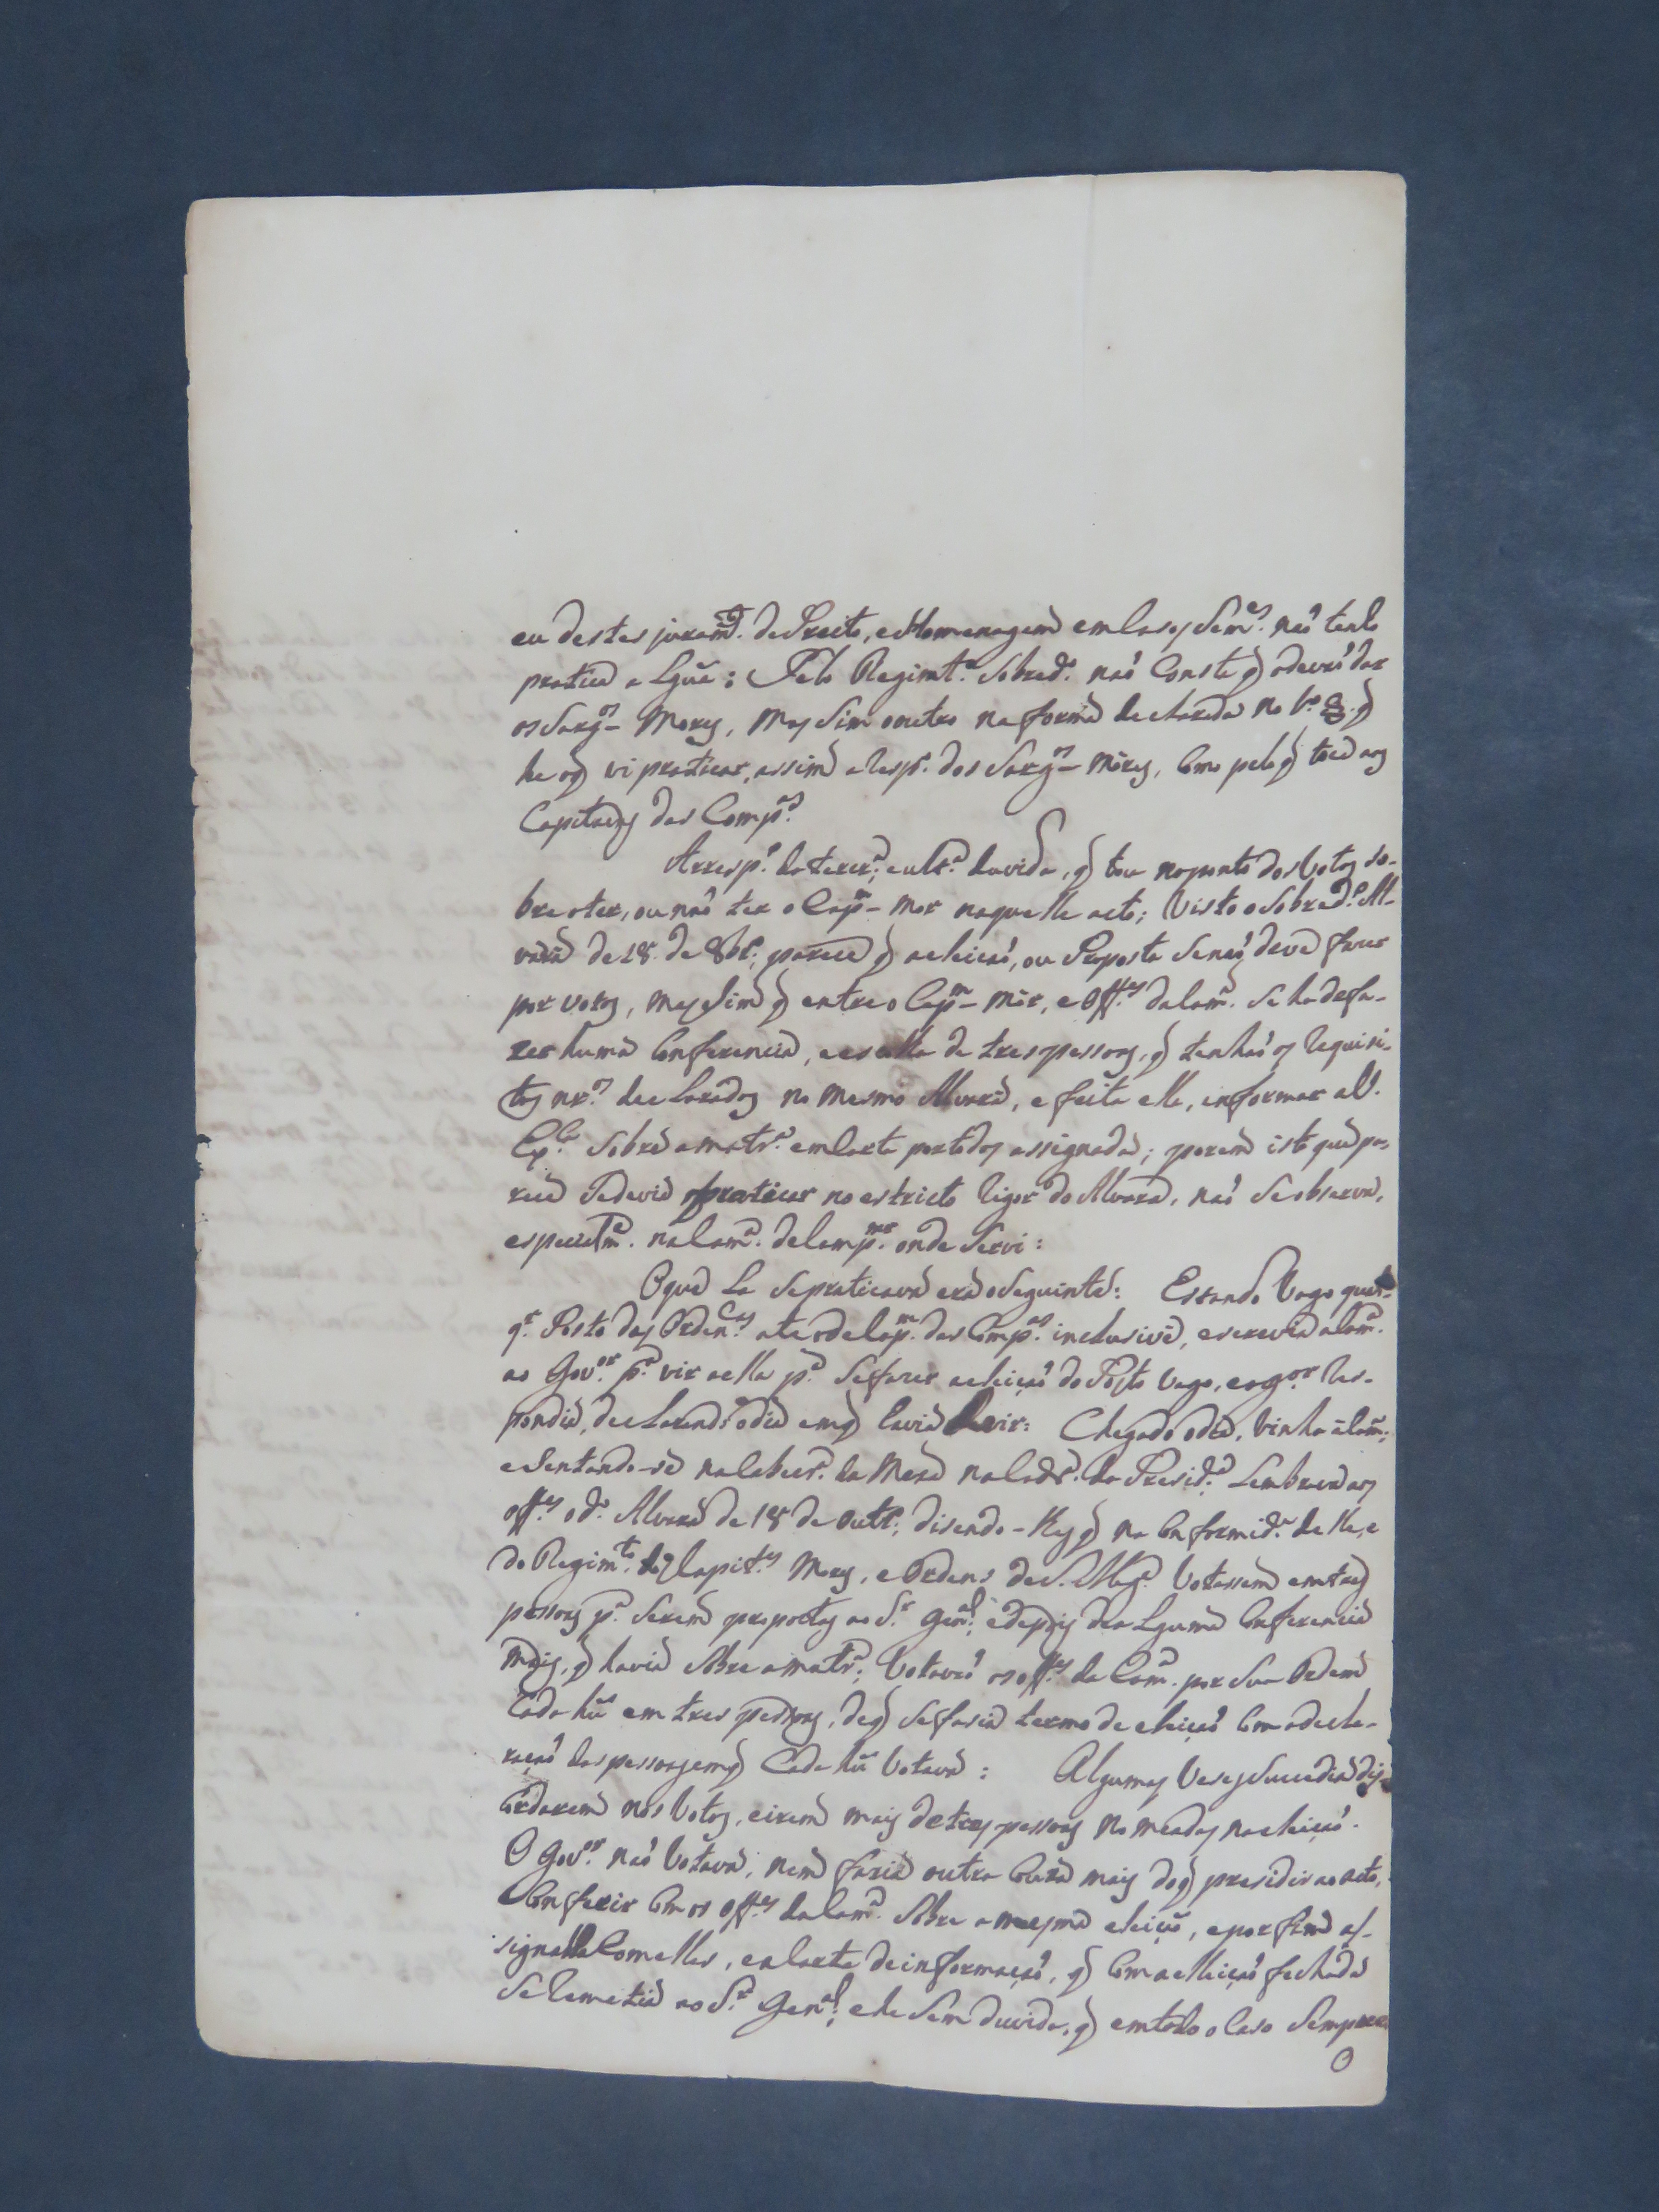 eu destes juram.to de Preito, e Homenagem em casos Sem.es naõ tenho
pratica algũa: Pelo Regimt.o Sobred.o naõ Consta q̃ o devaõ dar
os Sarg.os Mores, Mas Sim outro na forma declarada no V.o q̃
he o q̃ vi praticar, assim a resp.o dos Sarg.os mores, Como pelo q̃ toca aos
Capitaens das Comp.as
Arresp.o da terceir.a, e ult.a duvida, q̃ toca no ponto dos Votos so-
bre o ter, ou naõ ter o Cap.m mor naquelle acto; Visto o Sobred.o Al-
vará de 18 de 8br.o, parece q̃ a eleiçaõ, ou Proposta Se naõ deve fazer
por votos, mas Sim q̃ entre o Cap.m mór, e Off.es da Cam.a Se ha de fa-
zer huma Conferencia, e escolha de tres pessoas, q̃ tenhaõ os requisi-
tos declarados no mesmo Alvará, e feita ella, informar a V.
Ex.ca Sobre a matr.a em Carta por todos assignada; porem isto que pa-
rece Se devia praticar no estricto rigor do Alvará, naõ Se observa,
especialm.e na Cam.a de Camp.os onde Servi:
O que la Se praticava era o Seguinte: Estando Vago qual-
q.r Posto das Orden.cas ate o de Cap.m das Comp.as inclusive, escrevia a Cam.a
ao Gov.or p.a vir a ella p.a Se fazer a eleiçaõ do Posto Vago, e o g.or Res-
pondia, declarando o dia em q̃ havia de vir: Chegado o dia, vinha á Cam.a,
e Sentando-se na Cabec.a da Meza na Cadr.a da Presid.a Lembrava aos
off.es o d.o Alvará de 18 de Outr.o, disendo-lhes q̃ na Conformid.e delle, e
do Regim.to dos Capit.es Mores, e Ordens de S. Mag.e Votassem em tres
pessoas p.a Serem propostas ao S.r Gen.al; e depois de alguma Conferencia
mais, q̃ havia Sobre a matr.a, Votavaõ os off.es da Cam.a por Sua Ordem
Cada hũ em tres pessoas, de q̃ Se fasia termo de eleiçaõ Com a decla-
raçaõ das pessoas em q̃ Cada hũ Votava: Algumas Veses Succedia dis-
Cordarem nos Votos, e irem mais de tres pessoas nomeadas na eleiçaõ.
O Gov.or naõ Votava, nem fasia outra Couza mais do q̃ presidir ao acto,
e Conferir Com os Off.es da Cam.a Sobre a mesma eleiçaõ, e por fim as-
signalla Com elles, e a Carta de informaçaõ, q̃ Com a elleiçaõ fechada
Se remetia ao S.r Gen.al; e he Sem duvida, q̃ em todo o Caso Sempre
O